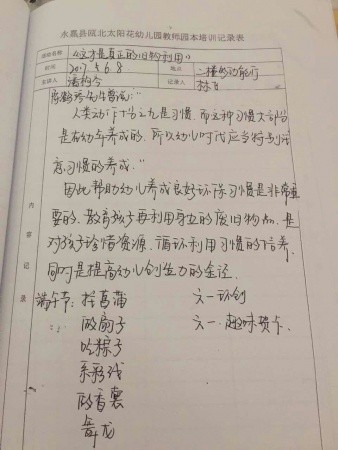 永嘉县瓯北太阳花幼儿园教师园本培训记录表
活动名称 《这才是真正的旧物利用》
时间 2017.5.6.8 地点 二楼多功能厅
主讲人 记录人
陈鹤琴先生曾说:"
人类动作十分之九是习惯,而这种习惯大部分
是在幼年养成的,所以幼儿时代应当特别注
意习惯的养成."
因此帮助幼儿养成良好环保习惯是非常重
要的.教育孩子再利用身边的废旧物品,是
对孩子珍惜资源、循环利用习惯的培养,
同时是提高幼儿创造力的途径.
内容记录
端午节:挂菖蒲 六一环创
做扇子 六一.趣味贺卡.
吃粽子
系彩线
做香囊
舞龙